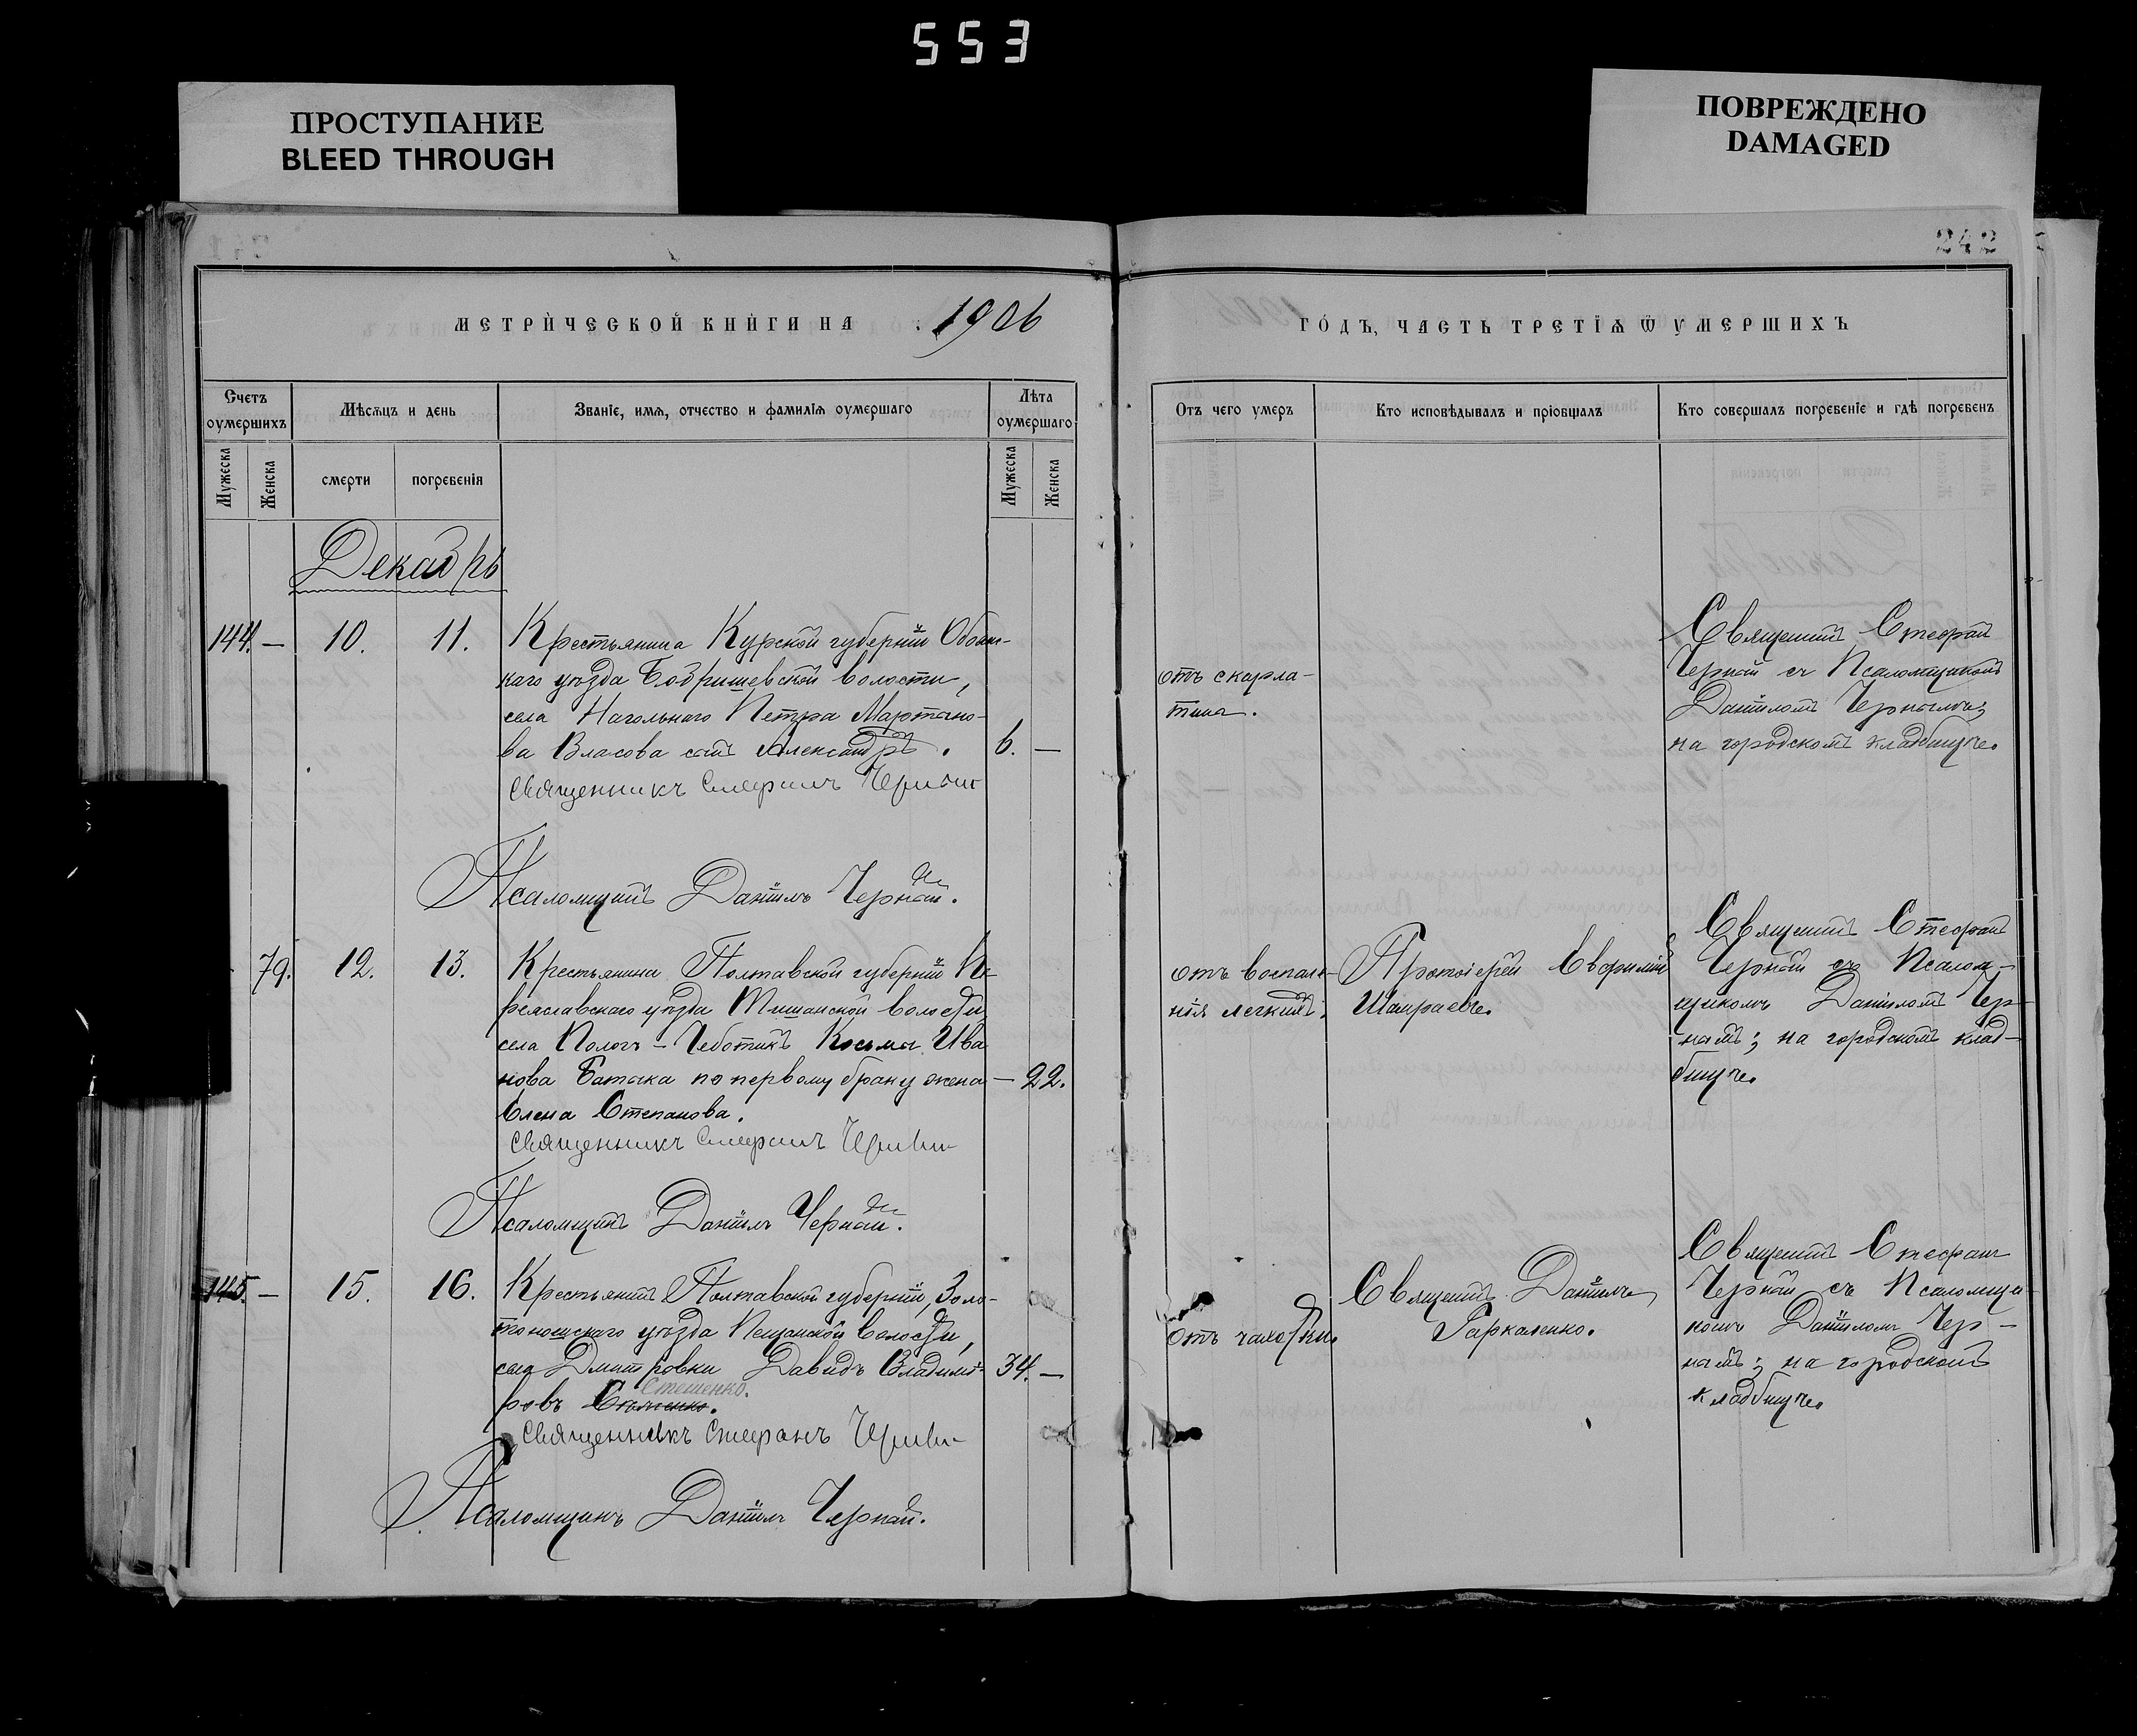 553
ПРОСТУПАНИЕ
BLEED THROUGH
ПОВРЕЖДЕНО
DAMAGED
242
МЕТРИЧЕСКОЙ КНИГИ НА 1906
ГОДЪ, ЧАСТЬ ТРЕТІЯ Ѿ УМЕРШИХЪ
Счетъ оумершихъ
Мѣсяцъ и день
Званіе, имя, отчество и фамилія оумершаго
Лѣта оумершаго
Отъ чего умеръ
Кто исповѣдывалъ и пріобщалъ
Кто совершалъ погребеніе и гдѣ погребенъ
Мужеска
Женска
смерти
погребенія
Мужеска
Женска
Декабрь
144. — 10. 11.
Крестьянина Курской губерніи Обоян-
скаго уѣзда Бобрышевской волости,
села Нагольнаго Петра Мартыно-
ва Власова сынъ Александръ.
6. —
Священникъ Стефанъ Черный
Псаломщикъ Даніилъ Черный.
отъ скарла-
тина.
Священникъ Стефан
Черный съ Псаломщикомъ
Даніиломъ Чернымъ;
на городскомъ кладбищѣ.
79. 12. 13.
Крестьянина Полтавской губерніи Пе-
реяславскаго уѣзда волости
села Пологъ-Чеботикъ Косьма Ива
нова по первому браку жена
Елена Степанова.
— 22.
Священникъ Стефанъ Черный
Псаломщикъ Даніилъ Черный.
отъ воспале-
нія легкихъ.
Протоіерей Евфимій
Священникъ Стефанъ
Черный съ Псалом-
щикомъ Даніиломъ Чер-
нымъ; на городскомъ клад-
бищѣ.
145. — 15. 16.
Крестьянинъ Полтавской губерніи, Золо-
тоношскаго уѣзда Пещанской волости,
села Дмитровки Давидъ Владимі-
ровъ
Стешенко.
34. —
Священникъ Стефанъ Черный
Псаломщикъ Даніилъ Черный.
отъ чахотки.
Священникъ Даніилъ
Гаркаленко.
Священникъ Стефанъ
Черный съ Псаломщи-
комъ Даніиломъ Чер-
нымъ; на городскомъ
кладбищѣ.